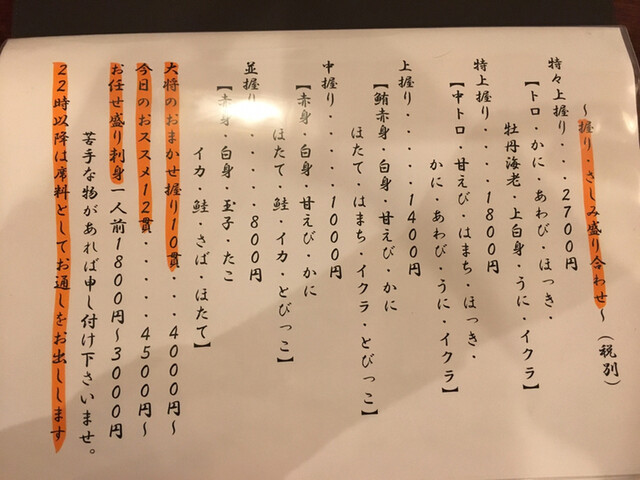 ～握り・さしみ盛り合わせ～（税別）
特々上握り・・・２７００円
【トロ・かに・あわび・ほっき・
牡丹海老・上白身・うに・イクラ】
特上握り・・・・１８００円
【中トロ・甘えび・はまち・ほっき・
かに・あわび・うに・イクラ】
上握り・・・・・１４００円
【鮪赤身・白身・甘えび・かに
ほたて・はまち・イクラ・とびっこ】
中握り・・・・・１０００円
【赤身・白身・甘えび・かに
ほたて・鮭・イカ・とびっこ】
並握り・・・・・・８００円
【赤身・白身・玉子・たこ
イカ・鮭・さば・ほたて】
大将のおまかせ握り１０貫・・・・４０００円～
今日のおススメ１２貫・・・・・・４５００円～
お任せ盛り刺身一人前１８００円～３０００円
苦手な物があれば申し付け下さいませ。
２２時以降は席料としてお通しをお出しします